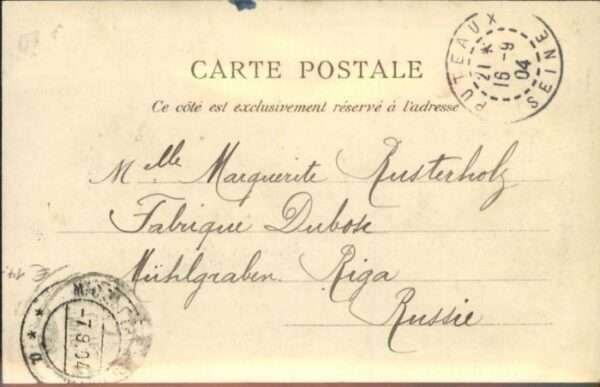 CARTE POSTALE
Ce côté est exclusivement réservé à l'adresse
PUTEAUX
SEINE
21 *
16 - 9
04
Mlle Marguerite Rusterholz
Fabrique Dubosc
Mühlgraben. Riga
Russie
-7.9.04